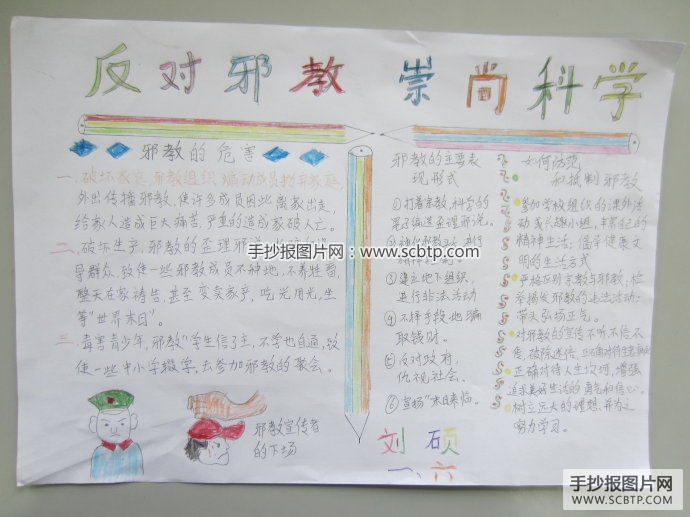 反对邪教 崇尚科学
邪教的危害
一、破坏家庭,邪教组织煽动成员抛弃家庭,
外出传播邪教,使许多成员因此离家出走,
给家人造成巨大痛苦,严重的造成家破人亡。
二、破坏生产,邪教的歪理邪
导群众,致使一些邪教成员不种地,不养牲畜,
整天在家祷告,甚至变卖家产,吃光用光,坐
等"世界末日"。
三、毒害青少年,邪教"学生信了主,不学也自通,致
使一些中小学辍学,去参加邪教的聚会。
邪教宣传者
的下场
邪教的主要表
现形式
①打着宗教,科学的
幌子编造歪理邪说。
③建立地下组织,
进行非法活动
④不择手段地骗
取钱财。
⑤反对政府,
仇视社会。
⑥宣扬"末日来临。
如何防范
和抵制邪教
参加学校组织的课外活
动或兴趣小组,丰富自己的
精神生活,倡导健康文
明的生活方式
严格区别宗教与邪教,检
举揭发邪教的违法活动:
带头弘扬正气。
对邪教的宣传不听不信不
传,破除迷信,正确对待生老病死
正确对待人生坎坷,增强
追求美好生活的勇气和信心。
树立远大的理想,并为之
努力学习。
刘硕
一、六
手抄报图片网:www.scbtp.com
手抄报图片网
WWW.SCBTP.COM